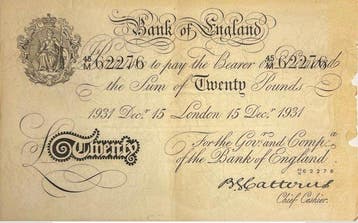 Bank of England
45/M 62276 to pay the Bearer on Demand 45/M 62276
the Sum of Twenty Pounds
1931 Decr. 15 London 15 Decr. 1931
For the Govr. and Compa.
of the Bank of England.
Twenty
62276
B G Catterns
Chief Cashier.